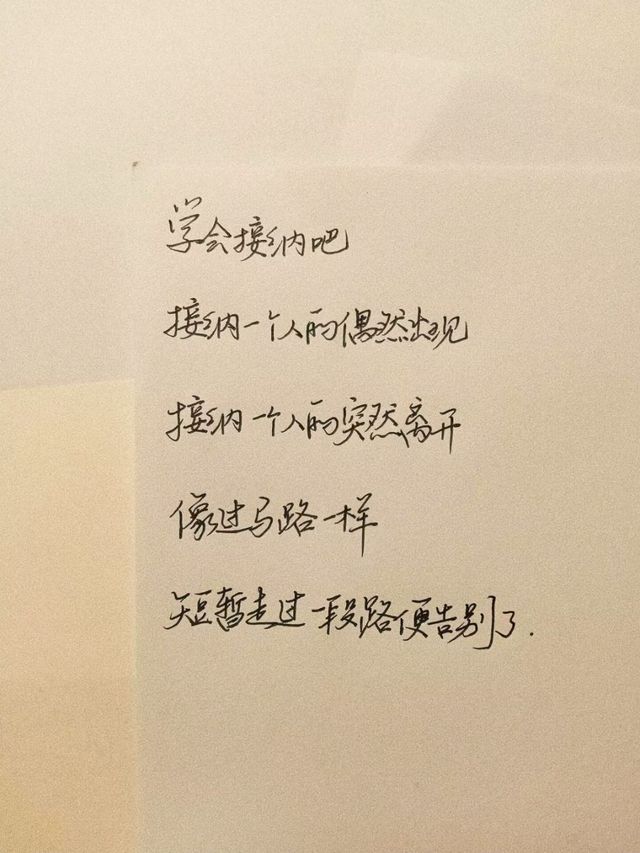 学会接纳吧
接纳一个人的偶然出现
接纳一个人的突然离开
像过马路一样
短暂走过一段路便告别了.